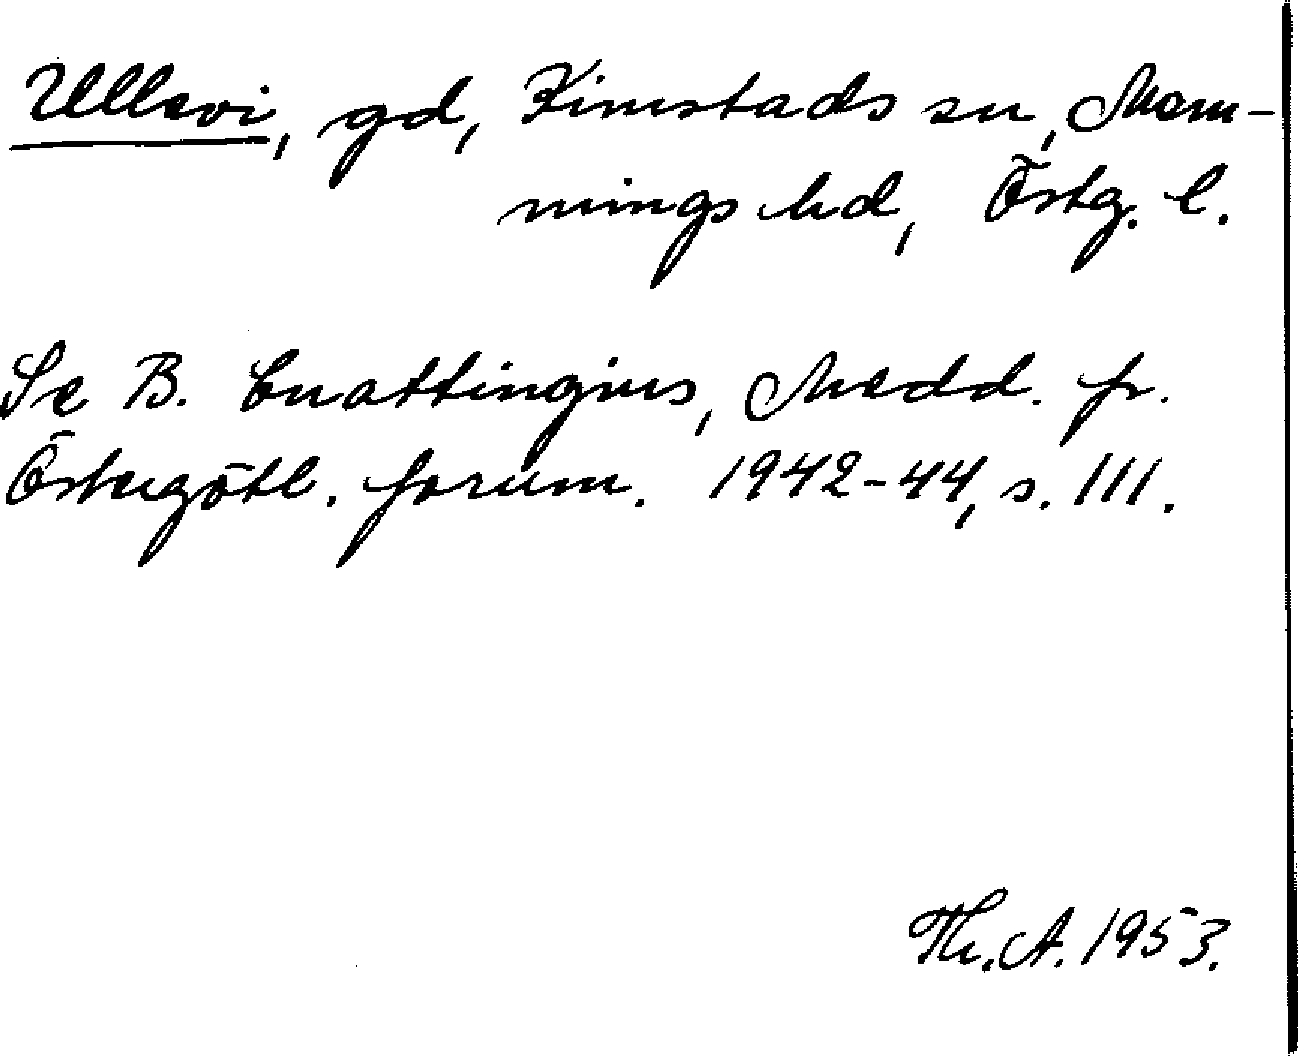 Ullevi, gd, Kimstads sn, Mem-
mings hd, Östg. l.
Se B. Cnattingius, Medd. fr.
Östergötl. fornm. 1942-44, s. 111.
Th. A. 1953.